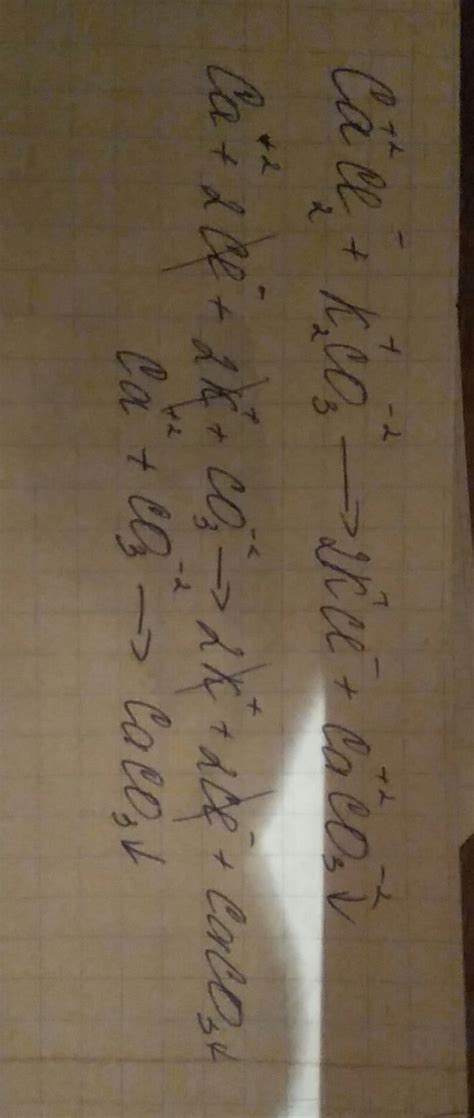 Ca⁺²Cl₂⁻ + K₂⁺CO₃⁻² → 2K⁺Cl⁻ + Ca⁺²CO₃⁻²↓
Ca⁺² + 2Cl⁻ + 2K⁺ + CO₃⁻² → 2K⁺ + 2Cl⁻ + CaCO₃↓
Ca⁺² + CO₃⁻² → CaCO₃↓